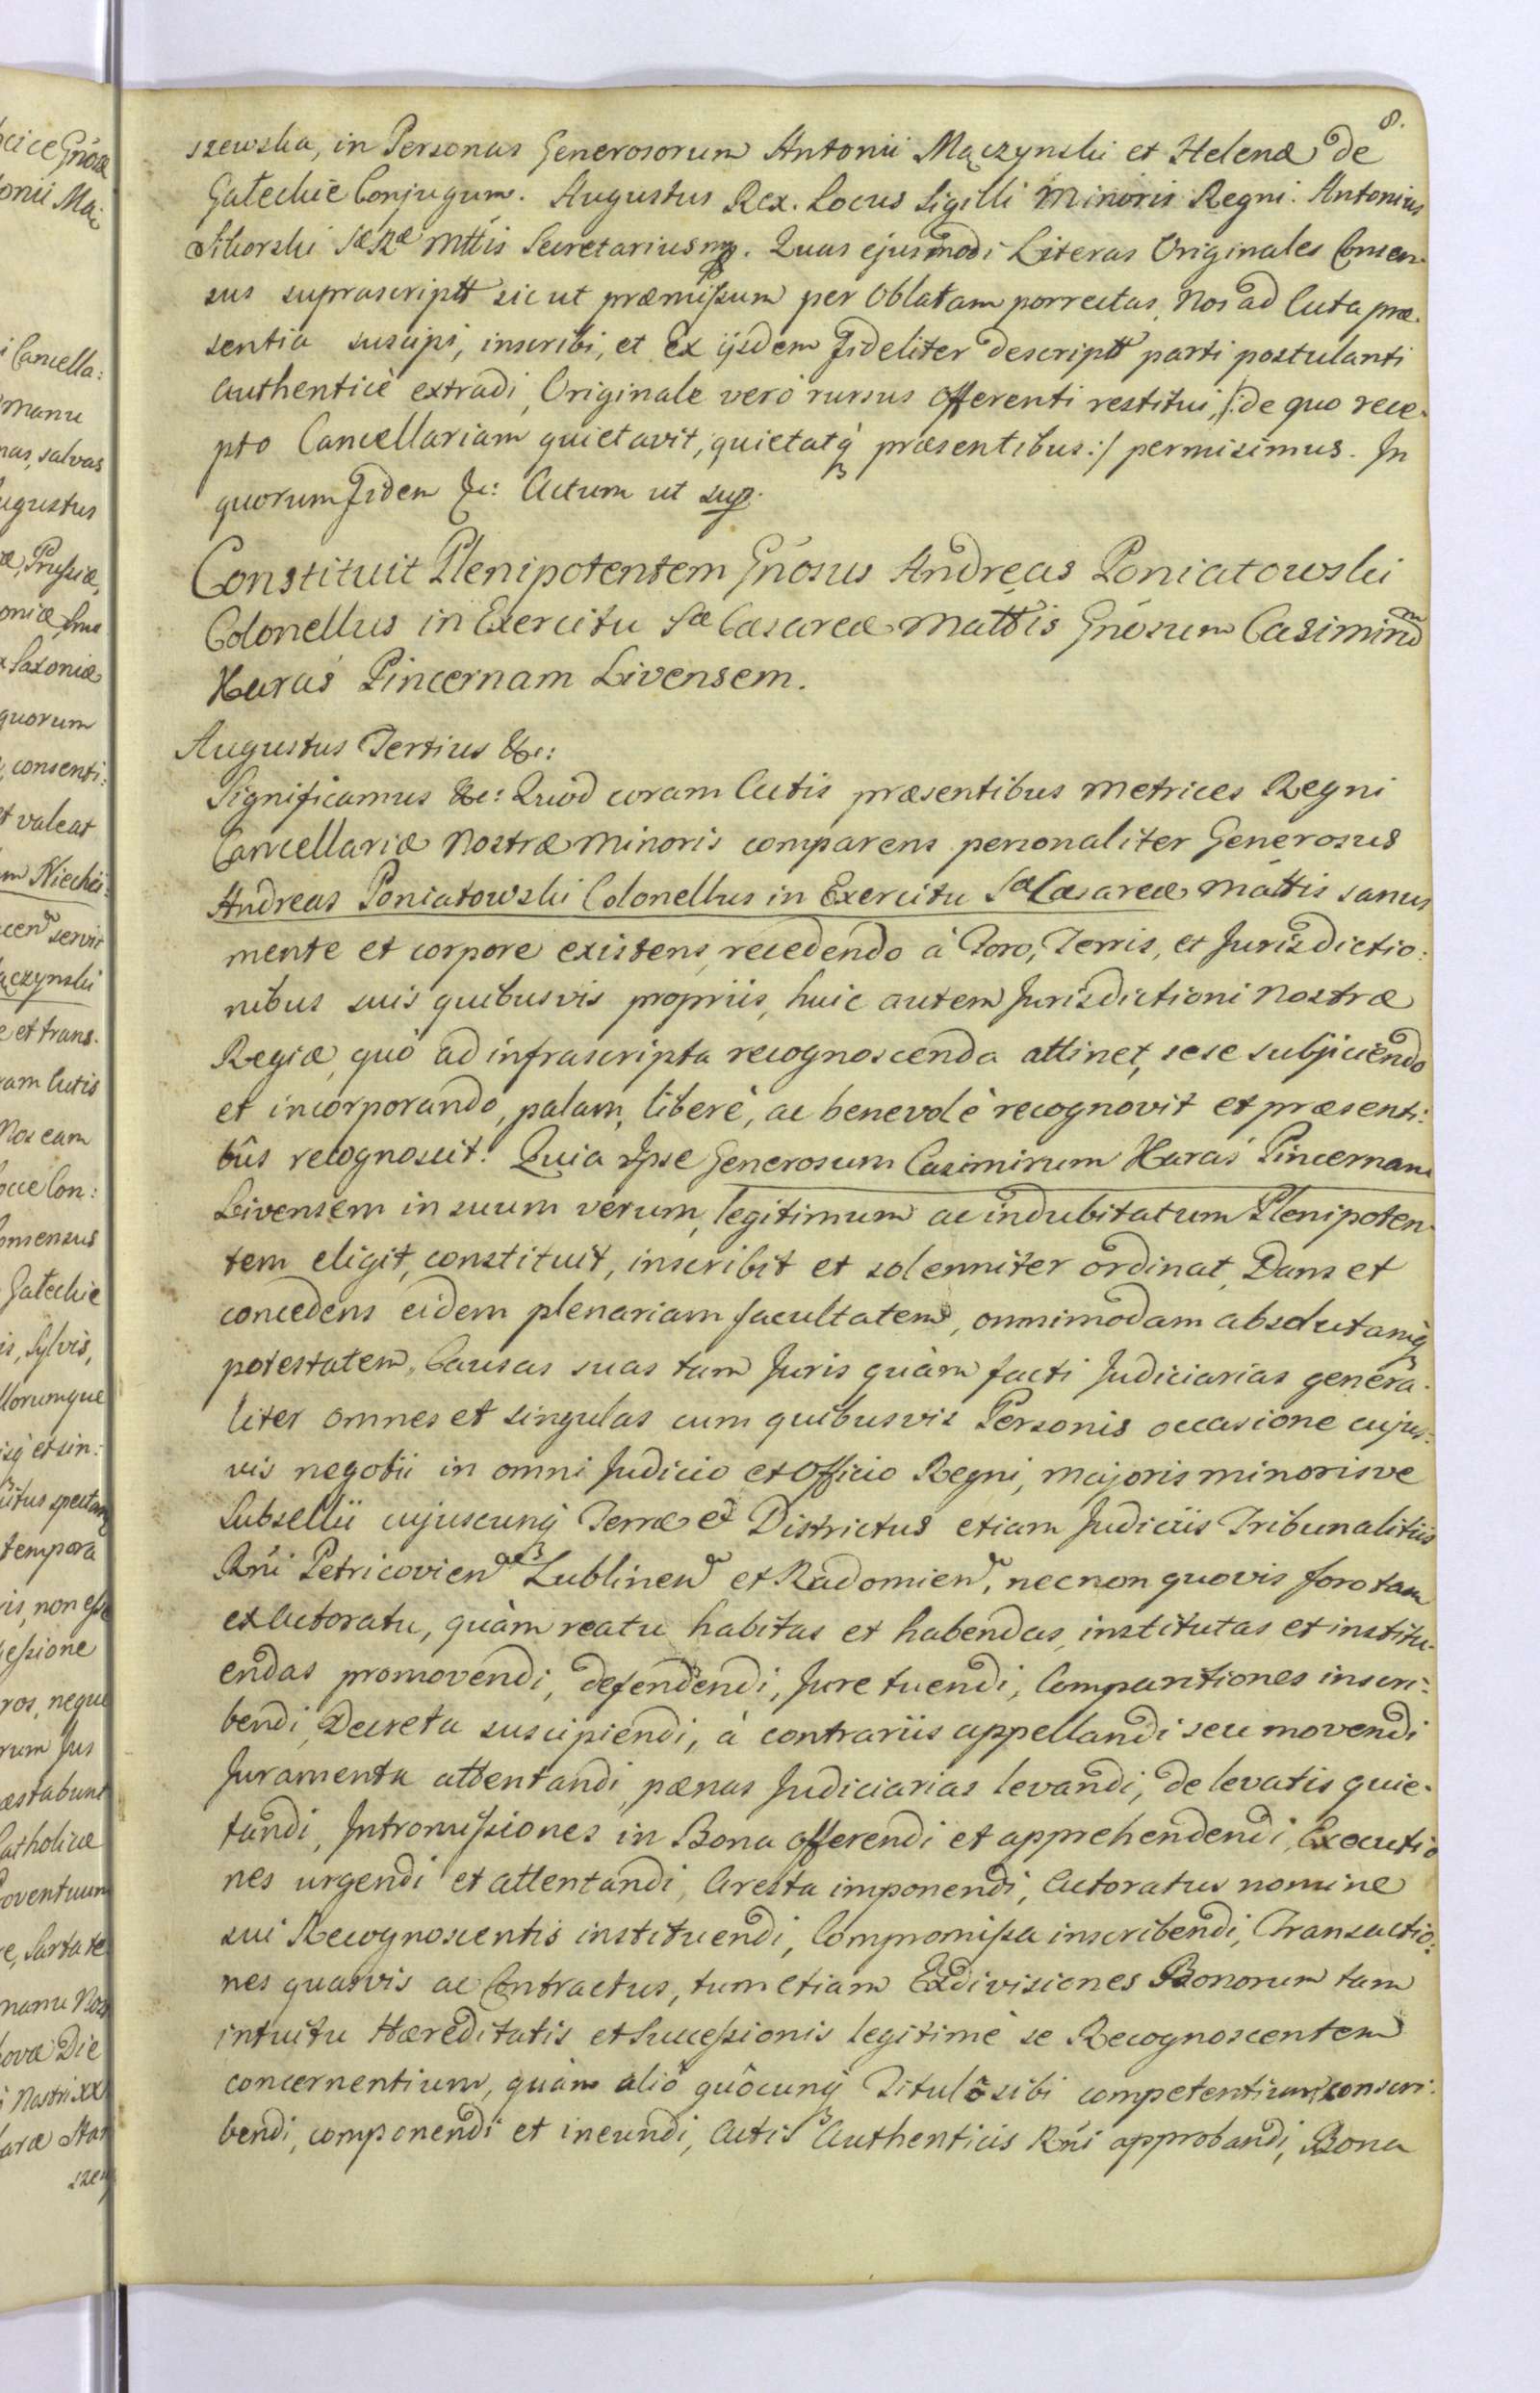 8.
szewska, in Personas Generosorum Antonii Mączynski et Helenæ de
Gałeckie Conjugum. Augustus Rex. Locus Sigilli Minoris Regni. Antonius
Sikorski Sæ Ræ Mttis Secretarius mp. Quas ejusmodi Literas Originales Consen-
sus suprascriptt sic ut præmissum per Oblatam porrectas, Nos ad Acta præ-
sentia suscipi, inscribi, et ex ijsdem fideliter descriptt parti postulanti
authenticè extradi, Originale verò rursus Offerenti restitui, /:de quo rece-
pto Cancellariam quietavit, quietatq præsentibus:/ permisimus. In
quorum Fidem &c: Actum ut sup.
Constituit Plenipotentem Gnösus Andreas Poniatowski
Colonellus in Exercitu Sæ Cæsareæ Mattis Gnösum Casimirum
Karaś Pincernam Livensem.
Augustus Tertius &c:
Significamus &c: Quod coram Actis præsentibus Metrices Regni
Cancellariæ Nostræ Minoris comparens personaliter Generosus
Andreas Poniatowski Colonellus in Exercitu Sæ Cæsareæ Mattis sanus
mente et corpore existens, recedendo à Foro, Terris, et Jurisdictio:
nibus suis quibusvis propriis, huic autem Jurisdictioni Nostræ
Regiæ, quò ad infrascripta recognoscenda attinet, sese subjiciendo
et incorporando, palam, liberè, ac benevolè recognovit et præsenti:
bûs recognoscit. Quia Ipse Generosum Casimirum Karaś Pincernam
Livensem in suum verum, legitimum ac indubitatum Plenipoten-
tem eligit, constituit, inscribit et solenniter ordinat, Dans et
concedens eidem plenariam facultatem, omnimodam absolutamq
potestatem, Causas suas tam Juris quàm facti Judiciarias genera-
liter omnes et singulas cum quibusvis Personis occasione cujus:
vis negotii in omni Judicio et Officio Regni, majoris minorisve
Subsellii cujuscunq Terræ et Districtus etiam Judiciis Tribunalitiis
Rni Petricovien Lublinen et Radomien, necnon quovis foro tam
ex Actoratu, quàm reatu habitas et habendas, institutas et institu-
endas promovendi, defendendi, Jure tuendi, Comparitiones inscri-
bendi, Decreta suscipiendi, à contrariis appellandi seu movendi
Juramenta attentandi, pænas Judiciarias levandi, de levatis quie-
tandi, Intromissiones in Bona offerendi et apprehendendi, Executio
nes urgendi et attentandi, Aresta imponendi, Actoratus nomine
sui Recognoscentis instituendi, Compromissa inscribendi, Transactio:
nes quasvis ac Contractus, tum etiam Exdivisiones Bonorum tam
intuitu Hæreditatis et Successionis legitimè se Recognoscentem
concernentium, quàm aliô quôcunq Titulô sibi competentium conscri-
bendi, componendi et ineundi, Actis Authenticis Rni approbandi, Bona